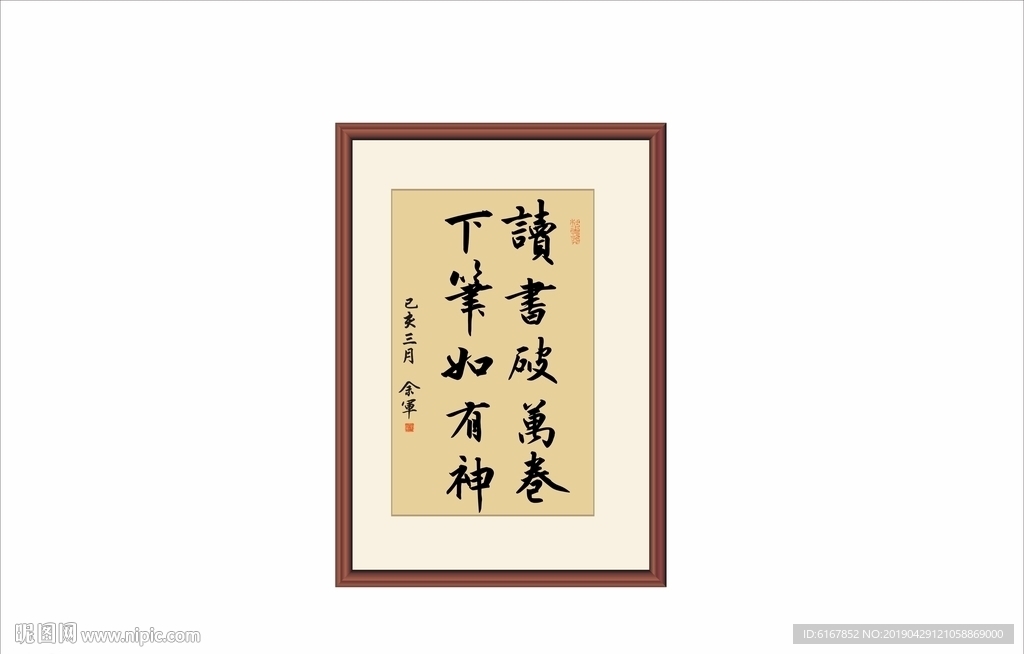 讀書破萬卷
下筆如有神
己亥三月 余軍
昵图网 www.nipic.com
ID:6167852 NO:20190429121058869000